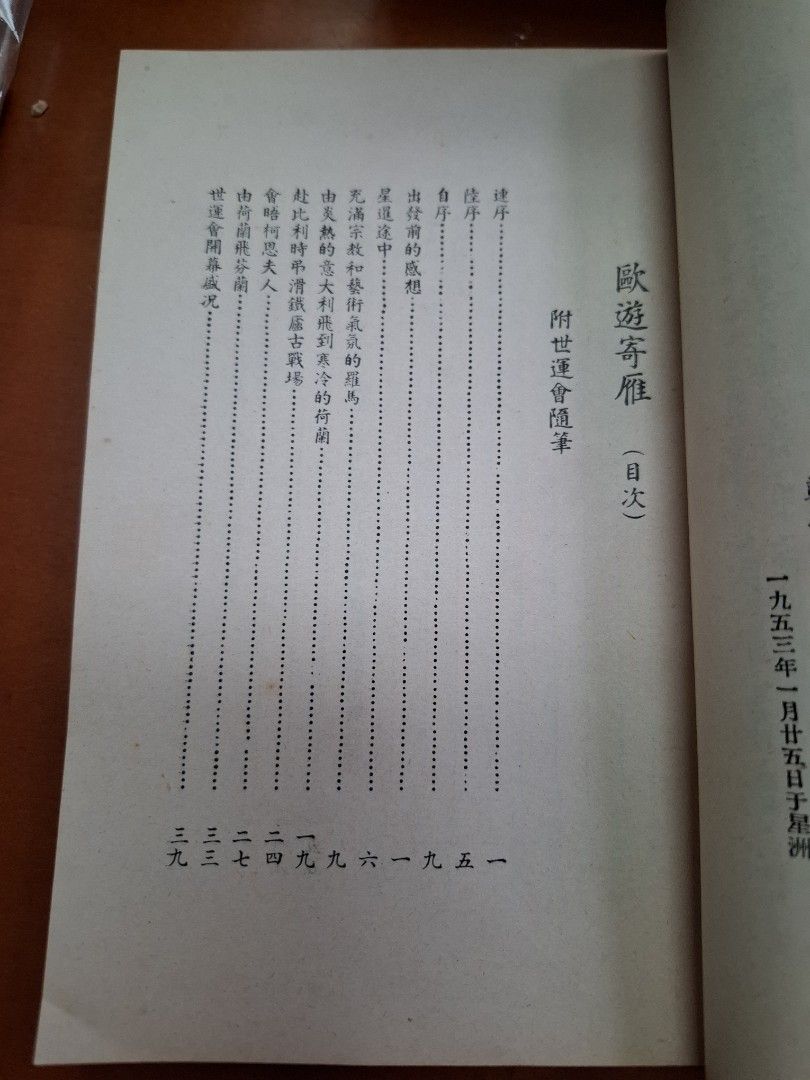 一九五三年一月廿五日于星洲
歐遊寄雁 （目次）
附世運會隨筆
連序……一
陸序……五
自序……九
出發前的感想……一
星暹途中……六
充滿宗教和藝術氣氛的羅馬……九
由炎熱的意大利飛到寒冷的荷蘭……一九
赴比利時弔滑鐵廬古戰場……二四
會晤柯恩夫人……二七
由荷蘭飛芬蘭……三三
世運會開幕盛况……三九